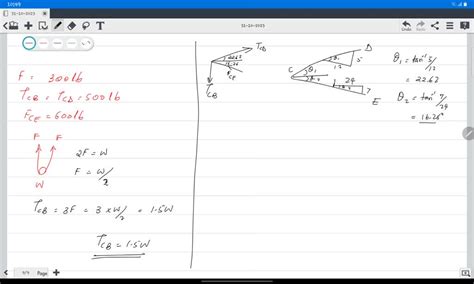 31-10-2023
31-10-2023
Undo
Redo
F = 300lb
T_CB = T_CD = 500lb
F_CE = 600lb
F F
W
2F = W
F = W/2
T_CB = 3F = 3 × W/2 = 1.5W
T_CB = 1.5W
T_CD
22.62
16.26
F_CE
T_CB
D
θ1
5
12
C
θ2
24
7
E
θ1 = tan⁻¹ 5/12
= 22.62
θ2 = tan⁻¹ 7/24
= 16.26°
Page